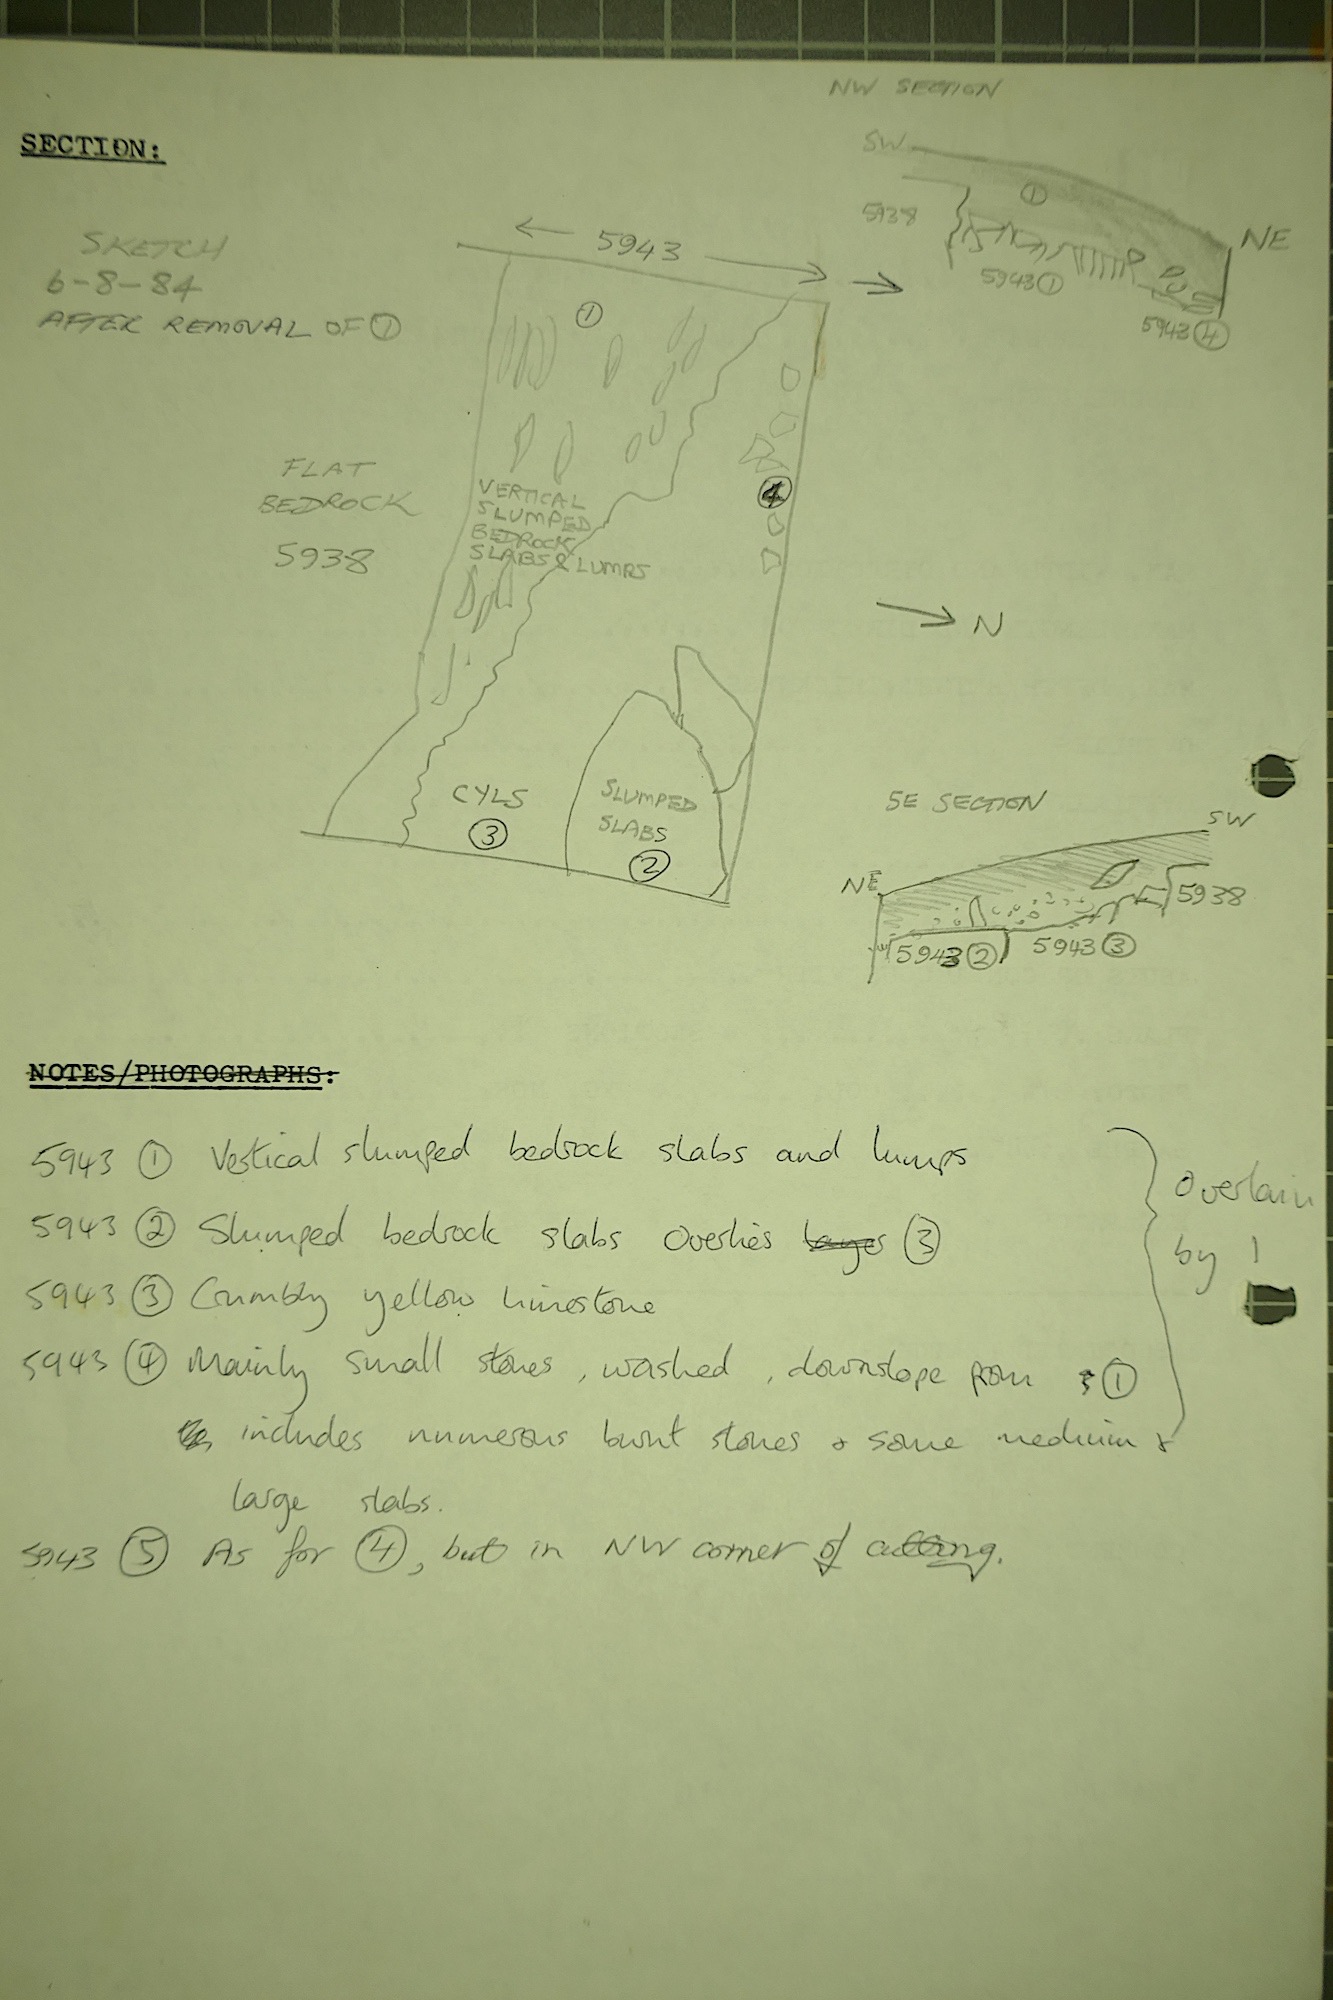 NW SECTION
SECTION:
SW
①
5938
NE
5943①
5943④
SKETCH
6-8-84
AFTER REMOVAL OF ①
← 5943 →
①
FLAT
BEDROCK
5938
VERTICAL
SLUMPED
BEDROCK
SLABS & LUMPS
④
N
CYLS
③
SLUMPED
SLABS
②
SE SECTION
SW
NE
5938
5943②
5943③
NOTES/PHOTOGRAPHS:
5943 ① Vertical slumped bedrock slabs and lumps
5943 ② Slumped bedrock slabs overlies layer ③
5943 ③ Crumbly yellow limestone
5943 ④ Mainly small stones, washed, downslope from ①
includes numerous burnt stones & some medium &
large slabs.
overlain
by 1
5943 ⑤ As for ④, but in NW corner of cutting.